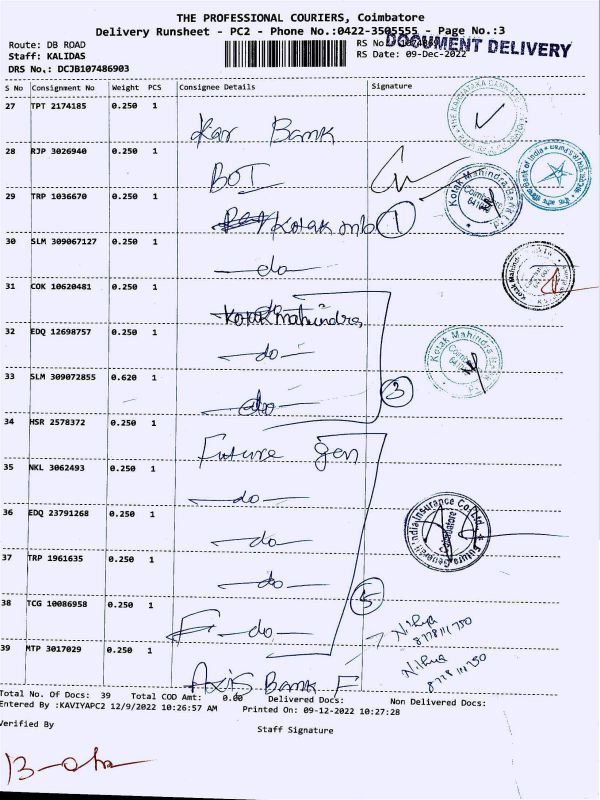 THE PROFESSIONAL COURIERS, Coimbatore
Delivery Runsheet - PC2 - Phone No.:0422-3505555 - Page No.:3
Route: DB ROAD
RS No.:
DOCUMENT DELIVERY
Staff: KALIDAS
RS Date: 09-Dec-2022
DRS No.: DCJB107486903
S No Consignment No Weight PCS Consignee Details Signature
27 TPT 2174185 0.250 1
Kar Bank
28 RJP 3026940 0.250 1
BOI
29 TRP 1036670 0.250 1
Kotak mb 1
30 SLM 309067127 0.250 1
-do-
31 COK 10620481 0.250 1
Kotak Mahindra
32 EDQ 12698757 0.250 1
-do-
33 SLM 309072855 0.620 1
-do- 3
34 HSR 2578372 0.250 1
Future gen
35 NKL 3062493 0.250 1
-do-
36 EDQ 23791268 0.250 1
-do-
37 TRP 1961635 0.250 1
-do- 5
38 TCG 10086958 0.250 1
-do-
39 MTP 3017029 0.250 1
Axis Bank F
Total No. Of Docs: 39 Total COD Amt: 0.00 Delivered Docs: Non Delivered Docs:
Entered By :KAVIYAPC2 12/9/2022 10:26:57 AM Printed On: 09-12-2022 10:27:28
Verified By
Staff Signature